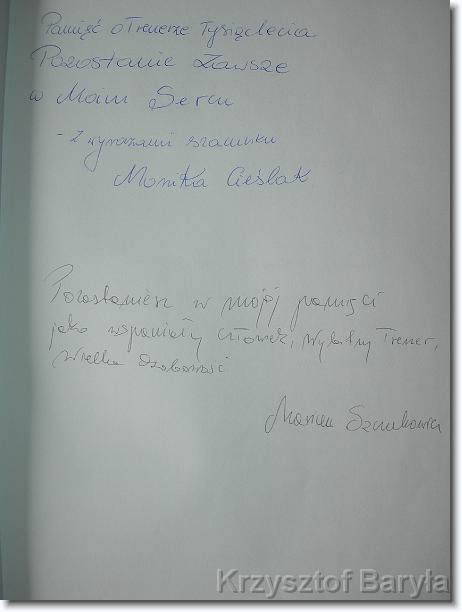 Pamięć o Trenerze Tysiąclecia
Pozostanie Zawsze
w Moim Sercu
- Z wyrazami szacunku
Monika Cieślak
Pozostaniesz w mojej pamięci
jako wspaniały człowiek, wybitny Trener,
Wielka Osobowość
Krzysztof Baryła